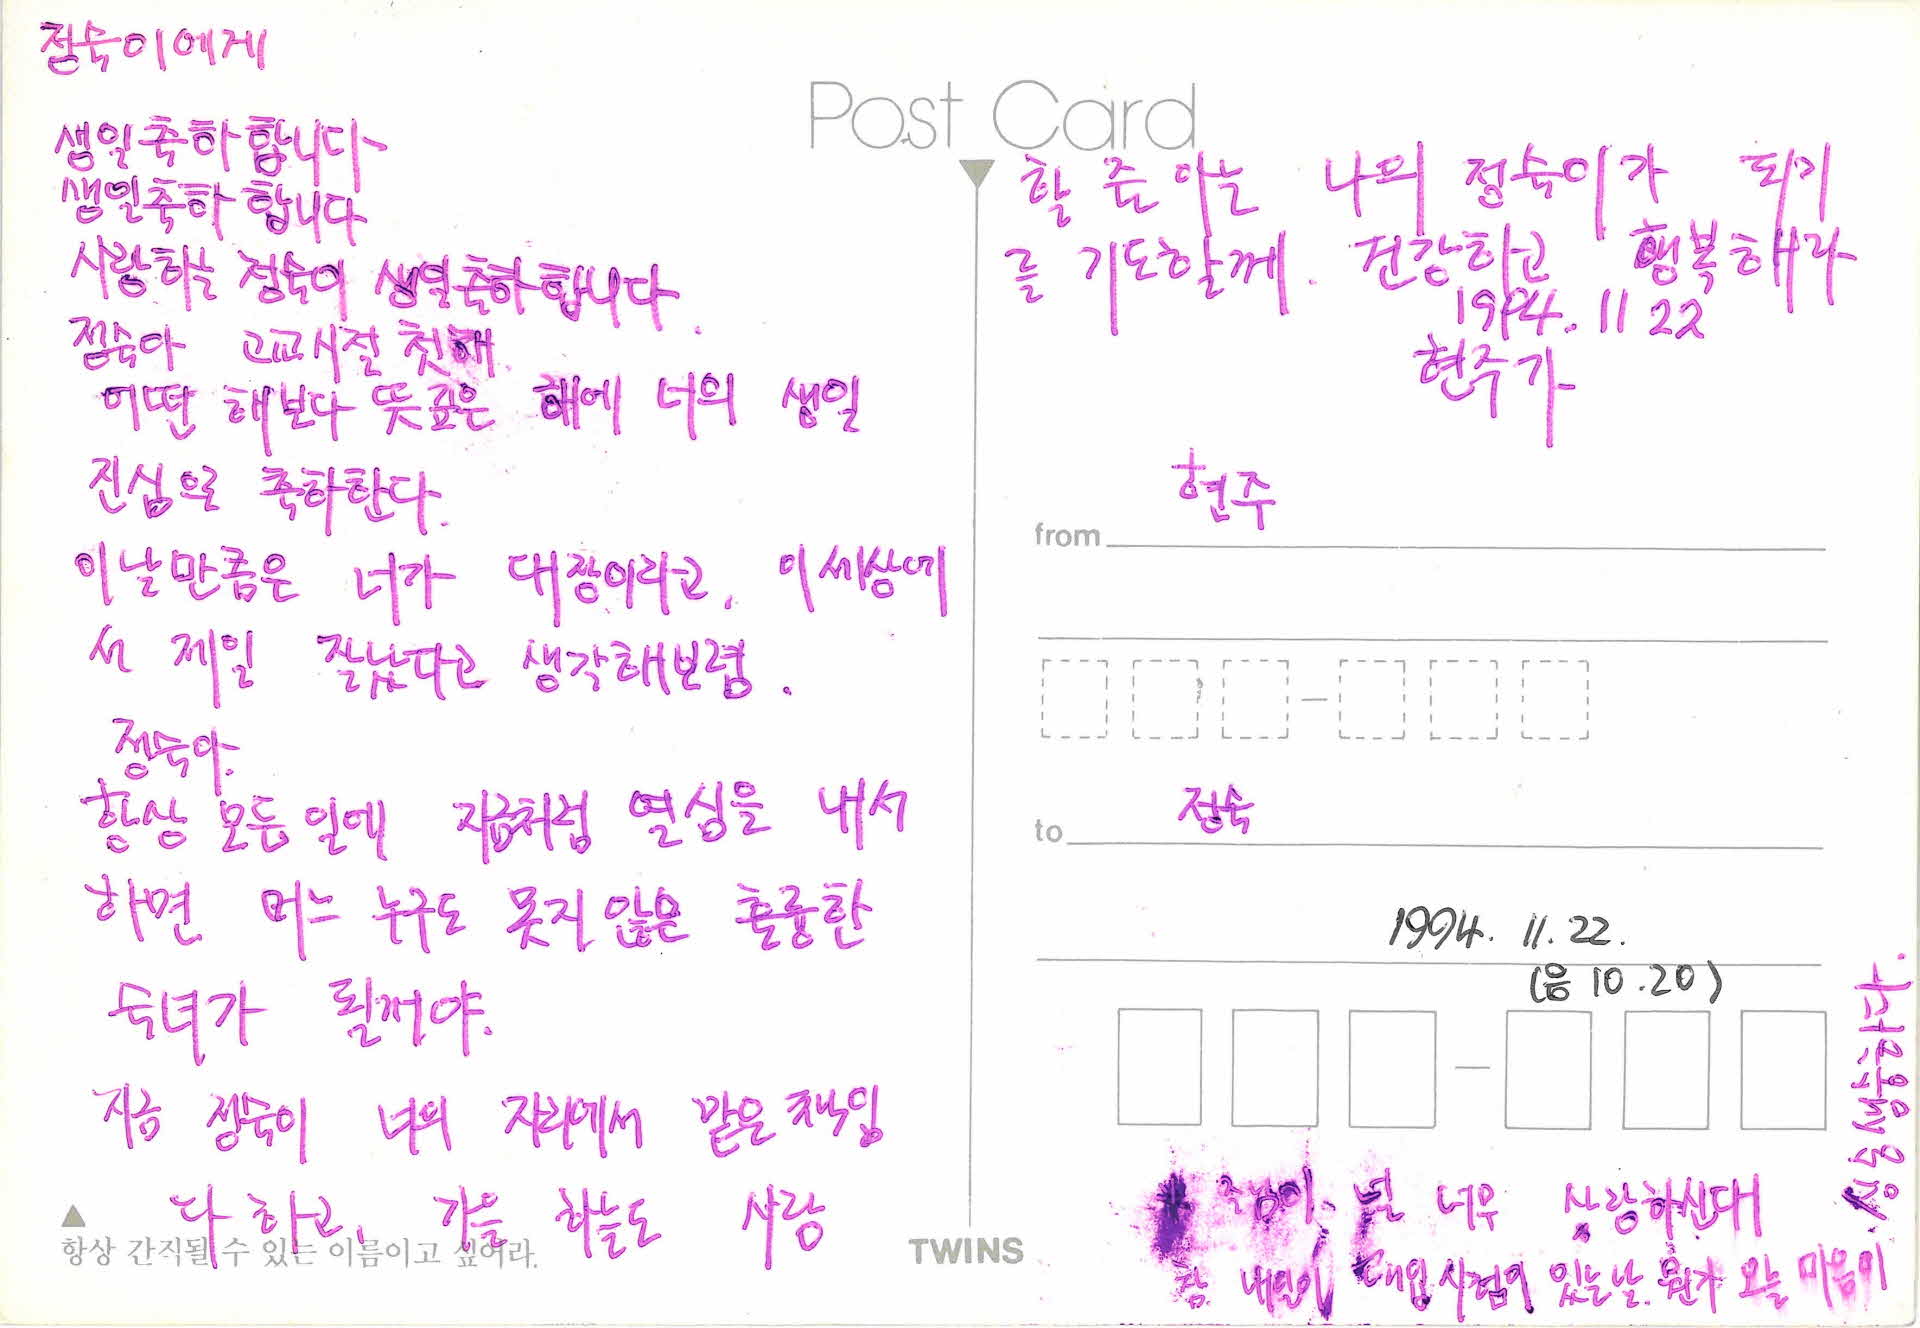 정숙이에게
생일축하합니다
생일축하합니다
사랑하는 정숙이 생일축하합니다.
정숙아 고교시절 첫해
어떤 해보다 뜻깊은 해에 너의 생일
진심으로 축하한다.
이날만큼은 너가 대장이라고, 이세상에
서 제일 잘났다고 생각해보렴.
정숙아.
항상 모든일에 지금처럼 열심을 내서
하면 어느 누구도 못지 않은 훌륭한
숙녀가 될꺼야.
지금 정숙이 너의 자리에서 맡은책임
다 하고, 가을 하늘도 사랑
항상 간직될 수 있는 이름이고 싶어라.
TWINS
Post Card
할 줄 아는 나의 정숙이가 되기
를 기도할께. 건강하고 행복해라
1994. 11 22
현주가
현주
from
정숙
to
1994. 11. 22.
(음 10.20)
널 너무 사랑하신대
참. 내일이 대입시험이 있는날. 뭔가 오늘 마음이